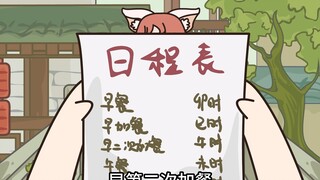 日程表
早餐 卯时
早加餐 巳时
早二次加餐 午时
午餐 未时
是第二次加餐